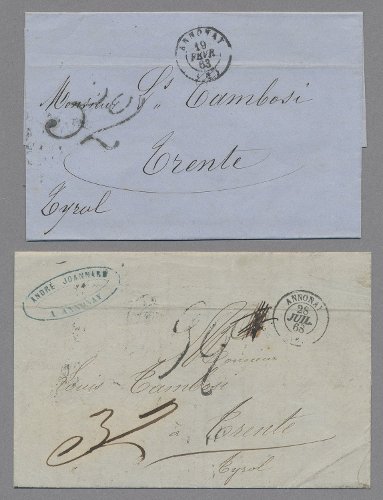 ANNONAY
19
FEVR.
63
Monsieur Ls Tambosi
32
Trente
Tyrol
ANDRÉ JOANNARD
A ANNONAY
ANNONAY
28
JUIL.
63
Monsieur
Louis Tambosi
32
à Trente
Tyrol